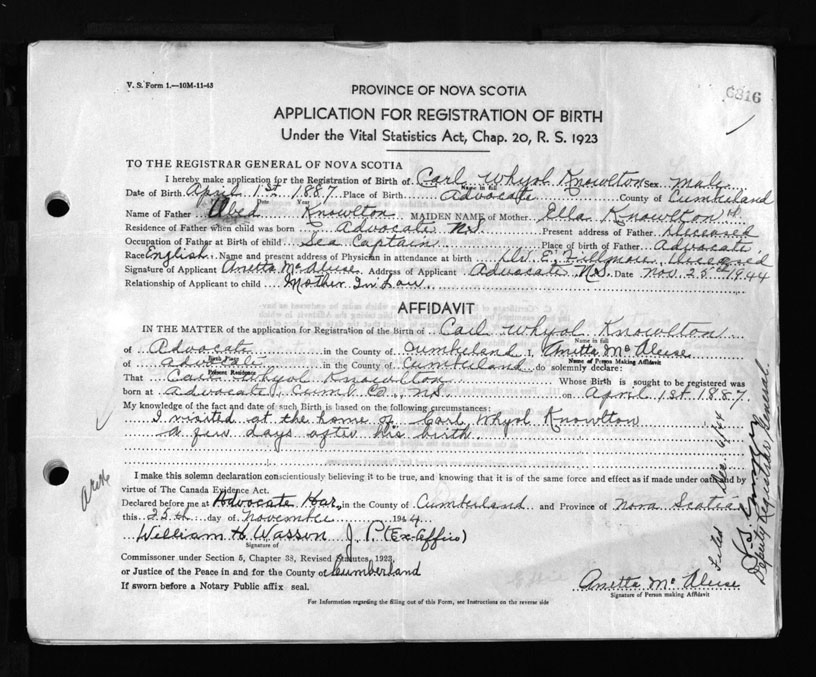 V. S. Form 1.—10M-11-43
6816
PROVINCE OF NOVA SCOTIA
APPLICATION FOR REGISTRATION OF BIRTH
Under the Vital Statistics Act, Chap. 20, R. S. 1923
TO THE REGISTRAR GENERAL OF NOVA SCOTIA
I hereby make application for the Registration of Birth of Carl Whyol Knowlton Sex Male
Name in full
Date of Birth April 1st 1887 Place of Birth Advocate County of Cumberland
Date Year
Name of Father Abid Knowlton MAIDEN NAME of Mother Ella Knowlton
Residence of Father when child was born Advocate N.S. Present address of Father Deceased
Occupation of Father at Birth of child Sea Captain Place of birth of Father Advocate
Race English Name and present address of Physician in attendance at birth Dr. E. Fillmore Deceased
Signature of Applicant Anetta Mc Address of Applicant Advocate N.S. Date Nov. 25th 1944
Relationship of Applicant to child Mother In Law
AFFIDAVIT
IN THE MATTER of the application for Registration of the Birth of Carl Whyol Knowlton
Name in full
of Advocate in the County of Cumberland I, Anetta Mc
Birth Place Name of Person Making Affidavit
of Advocate in the County of Cumberland do solemnly declare:
Present Residence
That Carl Whyol Knowlton Whose Birth is sought to be registered was
born at Advocate, Cumb. Co., N.S. on April 1st 1887.
My knowledge of the fact and date of such Birth is based on the following circumstances:
I visited at the home of Carl Whyol Knowlton
a few days after his birth.
I make this solemn declaration conscientiously believing it to be true, and knowing that it is of the same force and effect as if made under oath and by
virtue of The Canada Evidence Act.
Declared before me at Advocate Har. in the County of Cumberland and Province of Nova Scotia
this 25th day of November 1944
William H Wasson J. P. (Ex-officio)
Signature of
Commissoner under Section 5, Chapter 38, Revised Statutes, 1923,
or Justice of the Peace in and for the County of Cumberland
If sworn before a Notary Public affix seal.
Anetta Mc
Signature of Person making Affidavit
For Information regarding the filling out of this Form, see Instructions on the reverse side
Filed Dec 6/44
Deputy Registrar General.